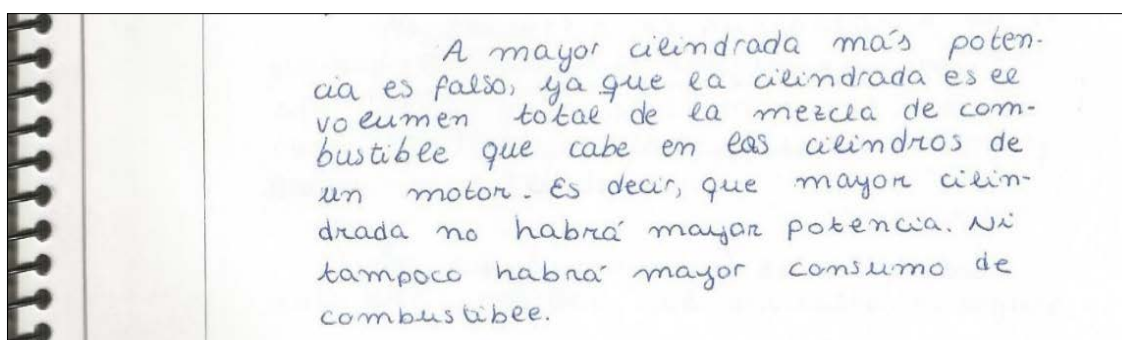 A mayor cilindrada más poten-
cia es falso, ya que la cilindrada es el
volumen total de la mezcla de com-
bustible que cabe en los cilindros de
un motor. Es decir, que mayor cilin-
drada no habrá mayor potencia. Ni
tampoco habrá mayor consumo de
combustible.